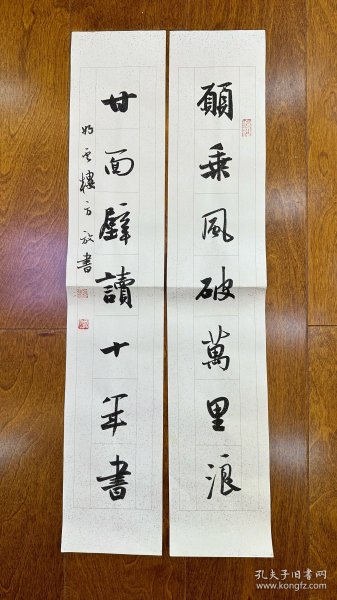 願乘風破萬里浪
甘面壁讀十年書
妙雲樓方放書
孔夫子旧书网
www.kongfz.com